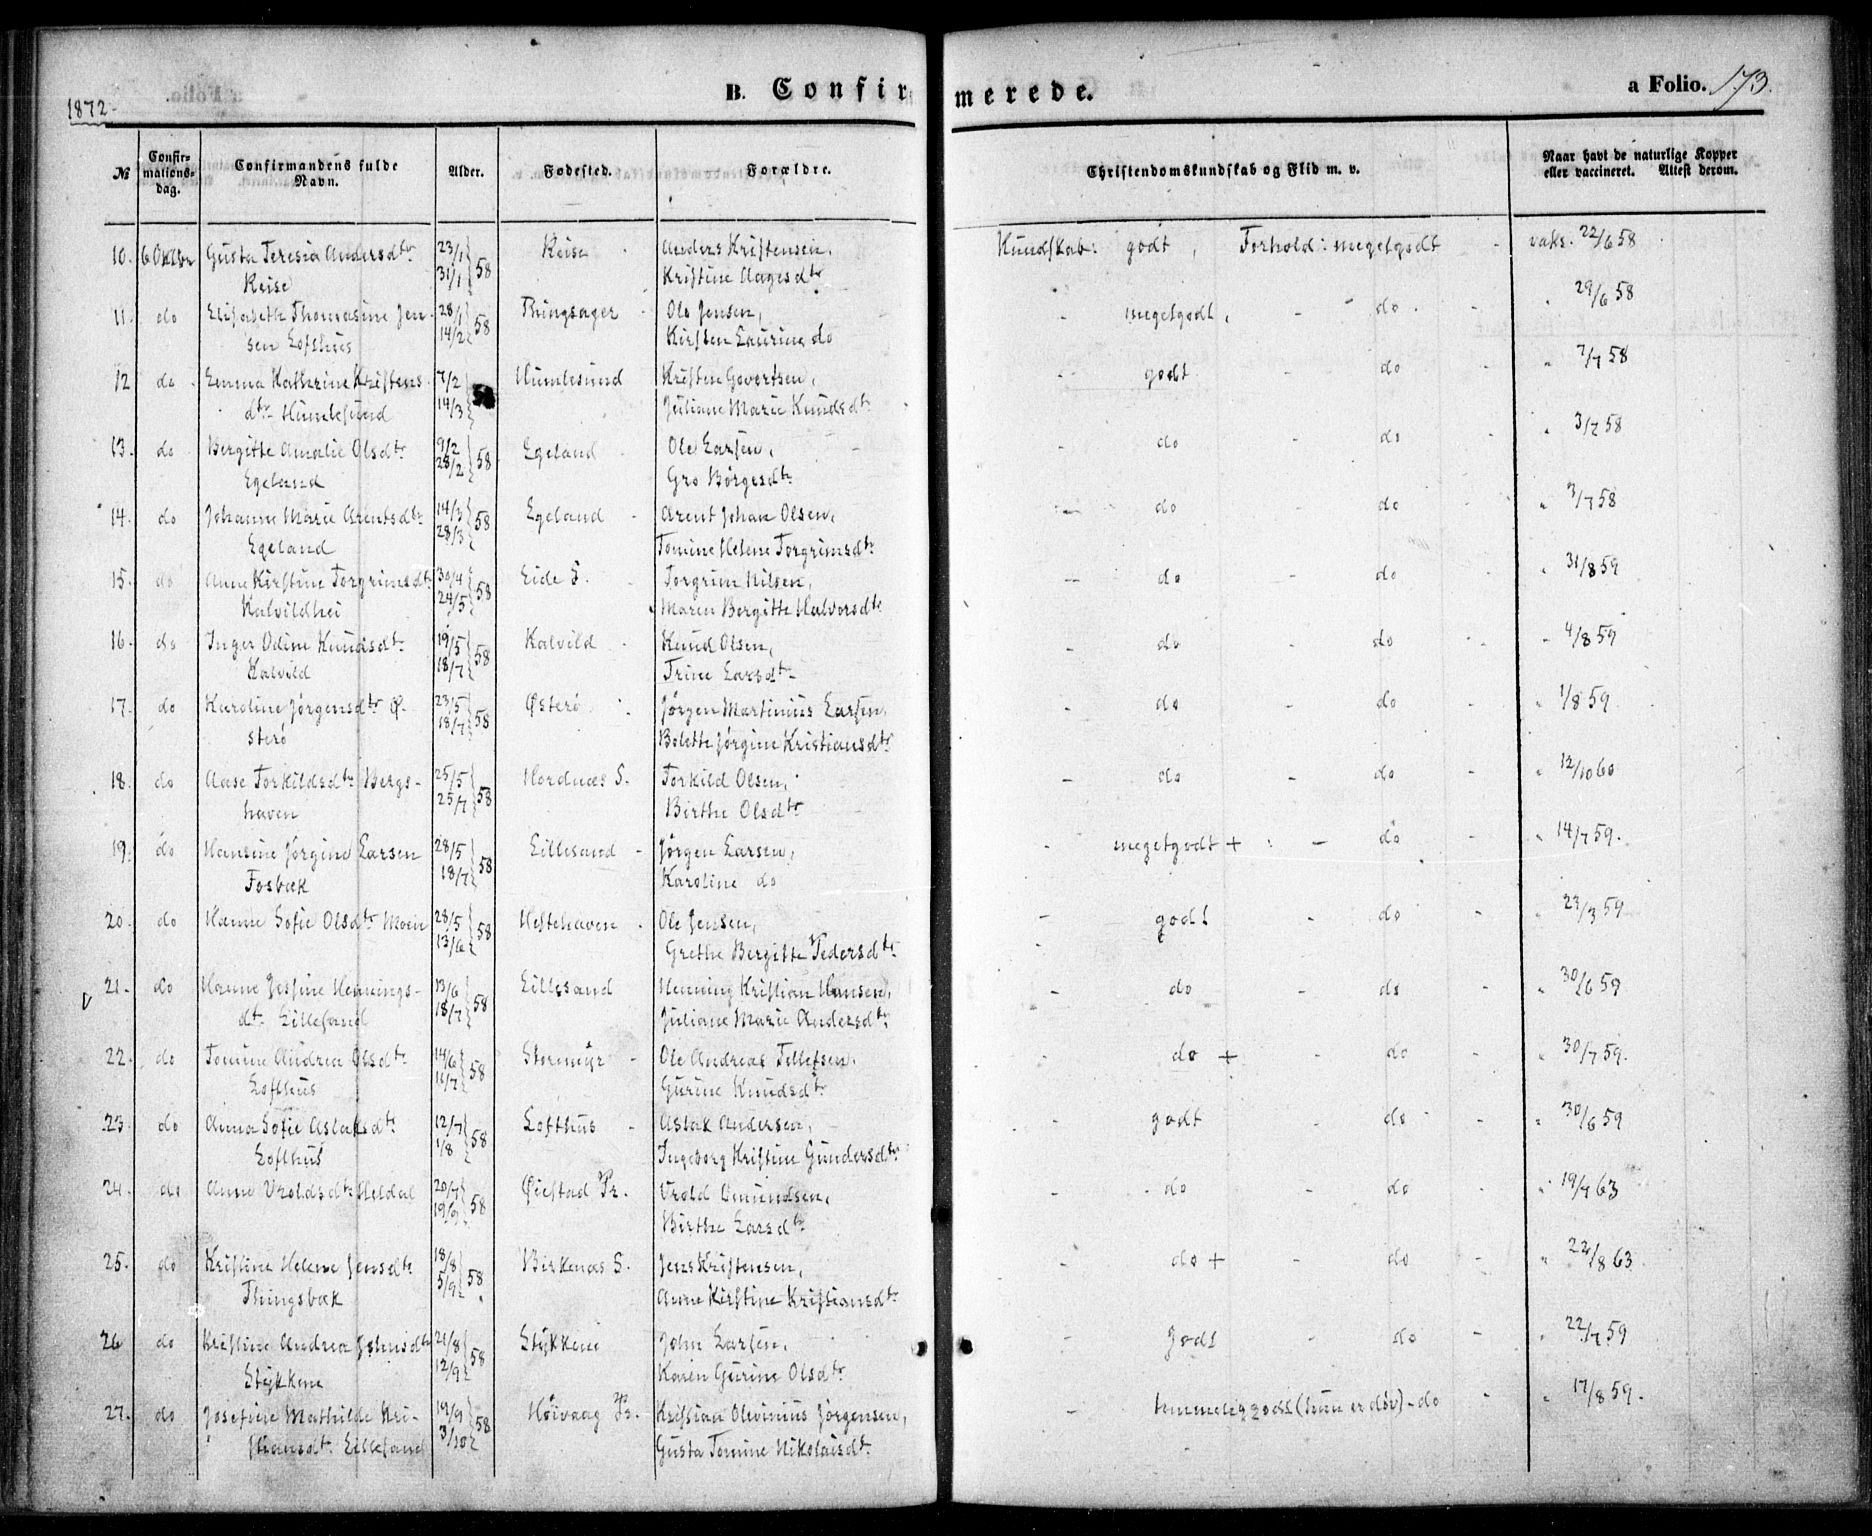 1872
B. Confirmerede.
a Folio. 173.
№
Confirmationsdag.
Confirmandens fulde Navn.
Alder.
Fødested.
Forældre.
Christendomskundskab og Flid m. v.
Naar havt de naturlige Kopper eller vaccineret. Attest derom.
10. 6 Oktbr Gusta Teresia Andersdtr 23/1 58 Reise Anders Kristensen, Kundskab: godt, Forhold: megetgodt vaks. 22/6 58
Reise 31/1 Kristine Aagesdtr
11. do Elisabeth Thomasine Jen- 28/1 58 Ringsager Ole Jensen, megetgodt, do 29/6 58
sen Lofthus 14/2 Kirsten Laurine do
12 do Emma Kathrine Kristens- 7/2 58 Humlesund Kristen Govertsen, godt do 7/7 58
dtr Humlesund 14/3 Juliane Marie Knudsdtr
13. do Bergitte Amalie Olsdtr 9/2 58 Egeland Ole Larsen, do do 3/7 58
Egeland 28/2 Gro Børgesdtr
14. do Johanne Marie Arentsdtr 14/3 58 Egeland Arent Johan Olsen, do do 3/7 58
Egeland 28/3 Tomine Helene Torgrimsdtr
15. do Anne Kirstine Torgrimsdtr 30/4 58 Eide S. Torgrim Nilsen, do do 31/8 59
Kalvildhei 24/5 Maren Bergitte Halvorsdtr
16. do Inger Odine Knudsdtr 19/5 58 Kalvild Knud Olsen, do do 4/8 59
Kalvild 18/7 Trine Larsdtr
17. do Karoline Jørgensdtr Ø- 23/5 58 Østerø Jørgen Martinius Larsen, do do 1/8 59
sterø 18/7 Bolette Jørgine Kristiansdtr
18. do Aase Torkildsdtr Bergs- 25/5 58 Hordnæs S. Torkild Olsen, do do 12/10 60
haven 25/7 Birthe Olsdtr
19. do Hansine Jørgine Larsen 28/5 58 Lillesand Jørgen Larsen, megetgodt + do 14/7 59.
Fosbæk 18/7 Karoline do
20. do Hanne Sofie Olsdtr Moen 28/5 58 Hestehaven Ole Jensen, godt do 23/3 59
13/6 Grethe Bergitte Pedersdtr
21. do Hanne Jossine Hennings- 13/6 58 Lillesand Henning Kristian Hansen, do do 30/6 59
dtr Lillesand 18/7 Juliane Marie Andersdtr
22. do Tomine Andrea Olsdtr 14/6 58 Stormyr Ole Andreas Tellefsen, do + do 30/7 59.
Lofthus 11/7 Gurine Knudsdtr
23. do Anna Sofie Aslaksdtr 12/7 58 Lofthus Aslak Andersen, godt do 30/6 59
Lofthus 1/8 Ingeborg Kristine Gundersdtr
24. do Anne Vroldsdtr Heldal 20/7 58 Øiestad Pr. Vrold Omundsen, do do 19/7 63
19/9 Birthe Larsdtr
25. do Kristine Helene Jensdtr 18/8 58 Birkenæs S. Jens Kristensen, do + do 22/8 63
Tingsbæk 5/9 Anne Kirstine Kristiansdtr
26 do Kristine Andrea Johnsdtr 21/8 58 Stykkene John Larsen, godt do 22/7 59
Stykkene 12/9 Karen Gurine Olsdtr
27. do Josefine Mathilde Kri- 19/9 58 Høivaag Pr. Kristian Olevinius Jørgensen, temmeliggodt (hun er døv) - do 17/8 59.
stiansdtr Lillesand 3/10 Gusta Tomine Nikolaisdtr